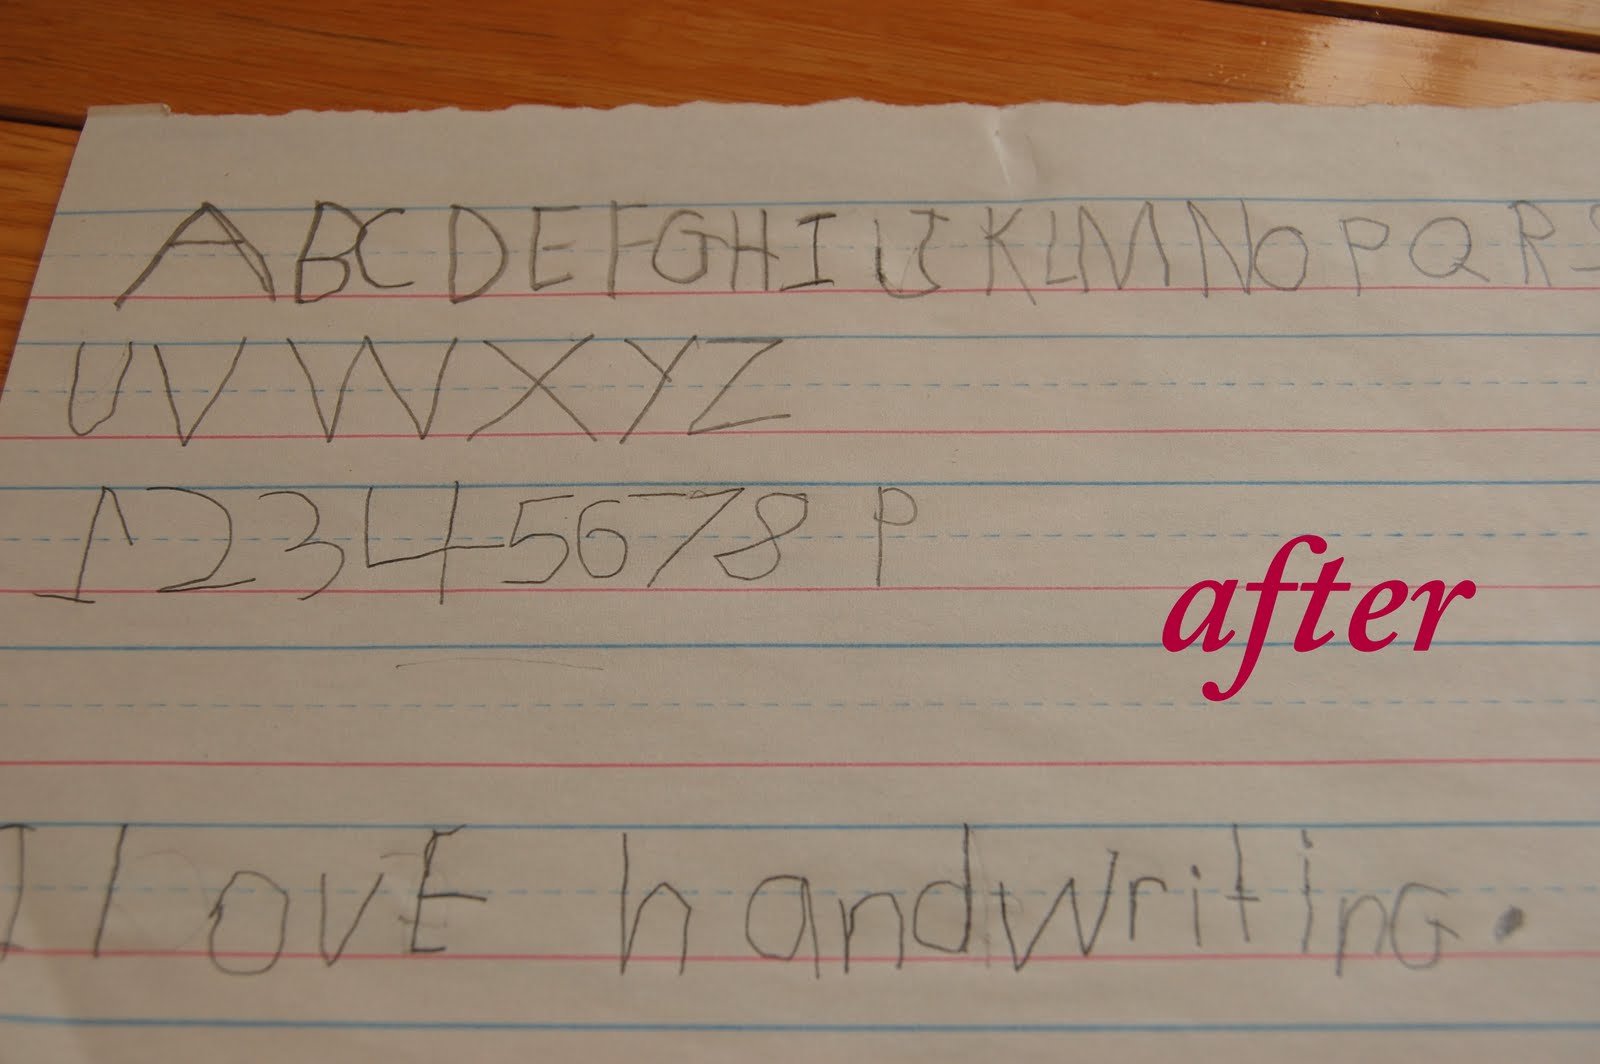 ABCDEFGHI J KLMNO P Q R S
UVWXYZ
12345678 P
after
I lovE handwritinG.